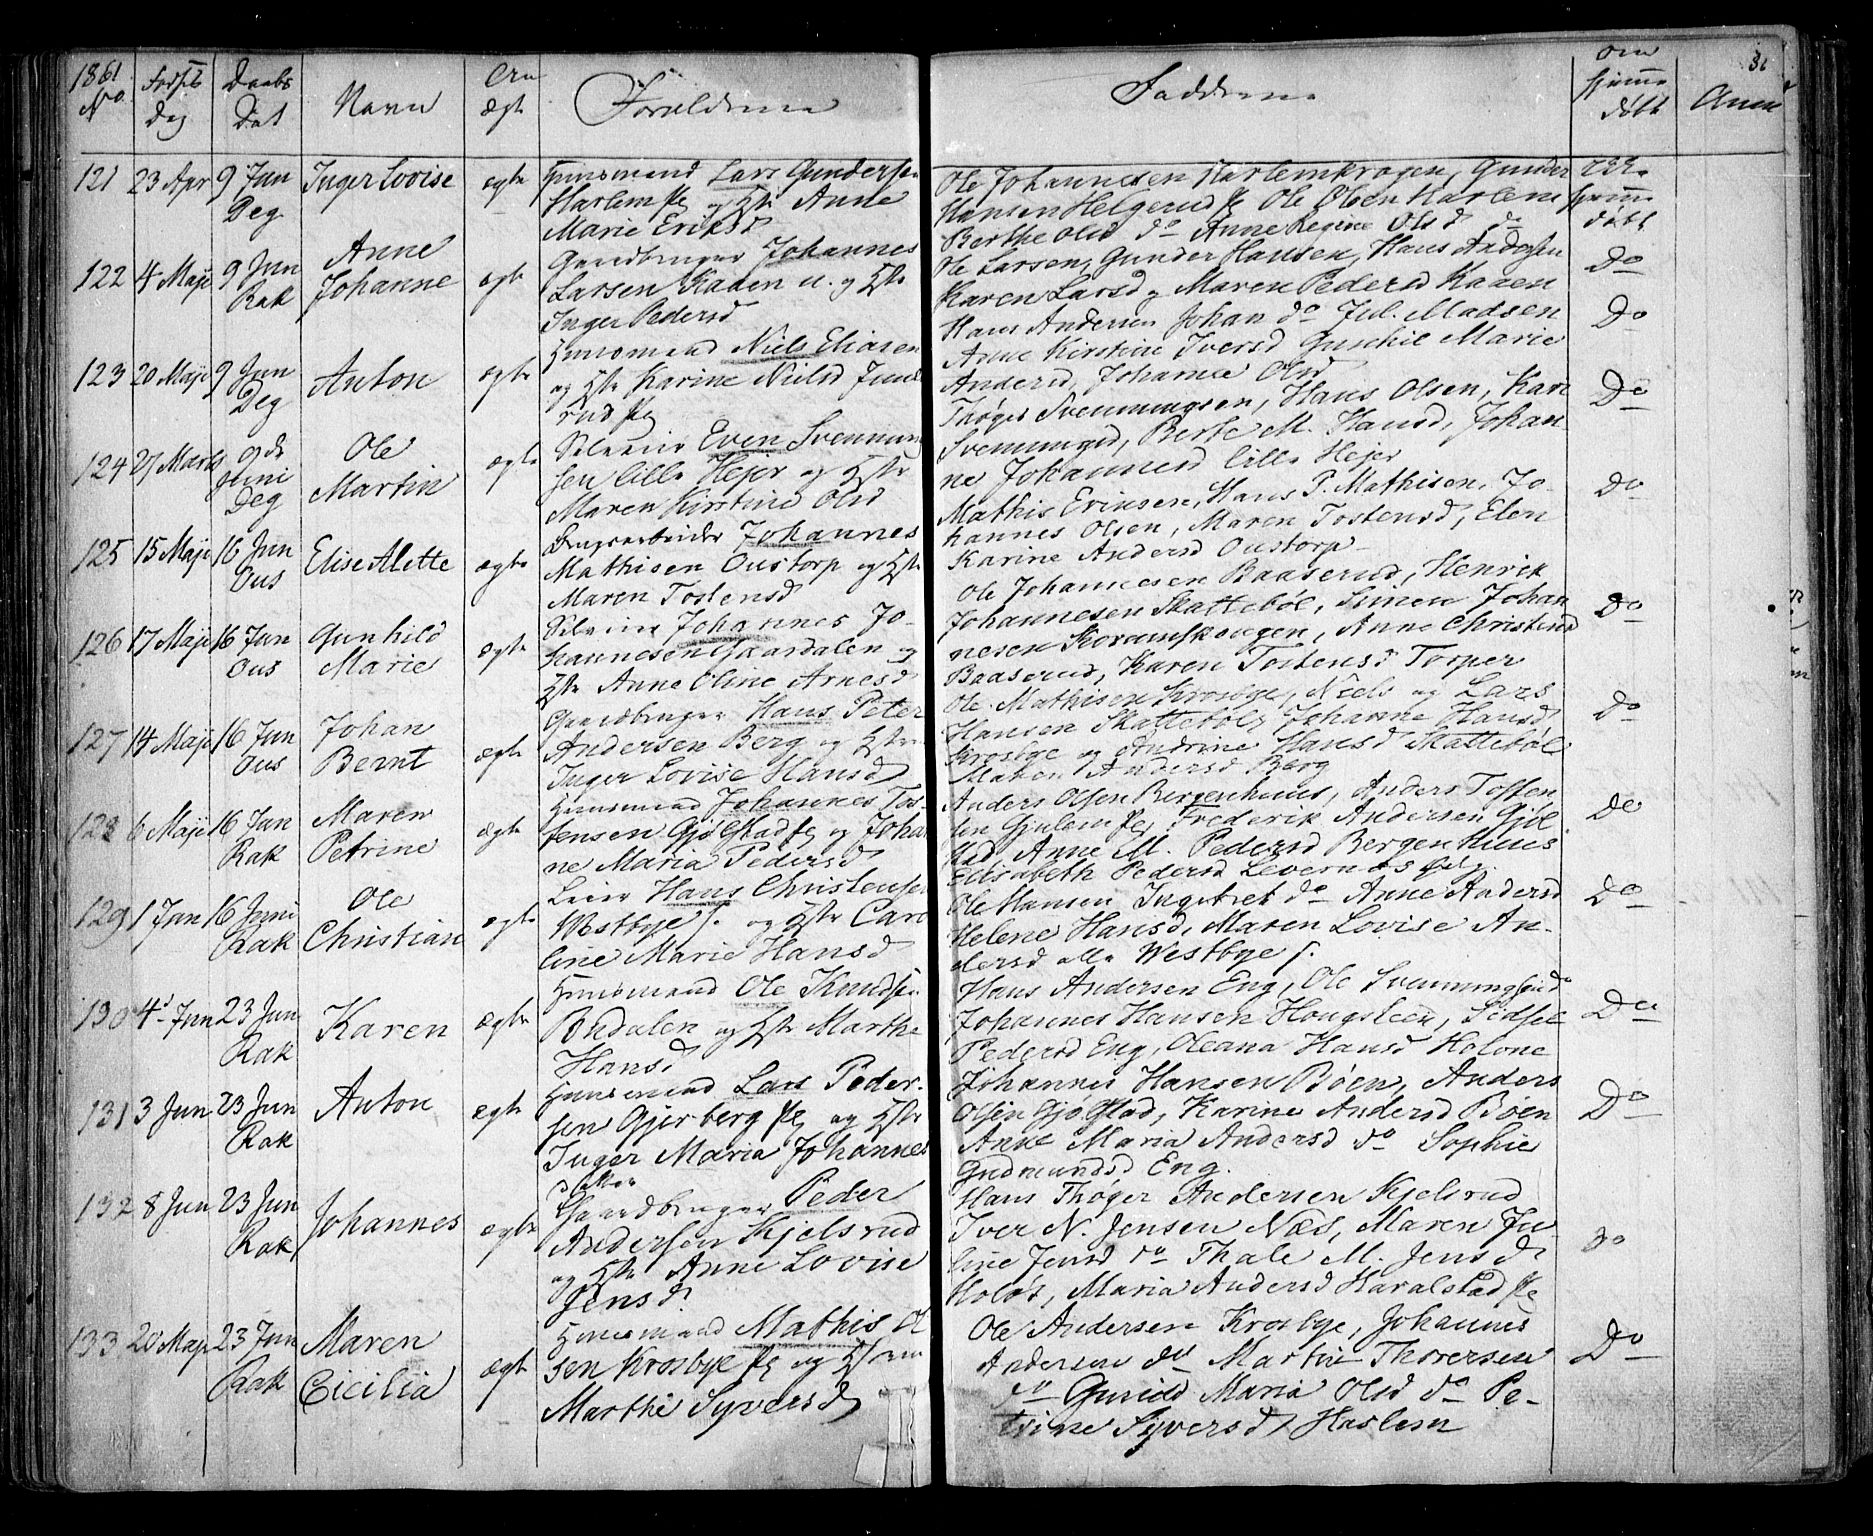 1861
No
Fødsels
Dag
Daabs
Dat
Navn
Om
ægte
Forældrene
Fadderne
om
hjemme
døbt
Anm
121 23 Apr 9 Jun Inger Lovise ægte Huusmand Lars Gundersen
Deg Harlem og Hstr Anne
Marie Eriksd
Ole Johannesen Harlemkragen, Gunder
Hansen Helgerud Ole Olsen Harlem
Berthe Olsd do Anne Regine Olsd do
hjemme
døbt
122 4 Maji 9 Jun Anne ægte Gaardbruger Johannes
Rak Johanne Larsen Kaaen u. og Hstr
Inger Pedersd
Ole Larsen, Gunder Hansen, Hans Andersen
Karen Larsd og Maren Pedersd Kaaen
Do
123 20 Maji 9 Jun Anton ægte Huusmand Niels Eliasen
Deg og Hstr Karine Nielsd
rud
Hans Andersen Johan do Jul. Madsen
Anne Kirstine Iversd Marie
Andersd, Johanne Olsd
Do
124 27 Marts 9de Ole ægte Selveier Even Svenning
Juni Martin sen lille Hejer og Hstr
Deg Maren Kirstine Olsd
Thøger Svenningsen, Hans Olsen, Kari
Svenningsd, Berte M. Hansd, Johan
ne Johannesd lille Hejer
Do
125 15 Maji 16 Jun Elise Alette ægte Brugsarbeider Johannes
Ous Mathisen Oustorp og Hstr
Maren Tostensd
Mathis Eriksen, Hans P. Mathisen, Jo-
hannes Olsen, Maren Tostensd, Elen
Karine Andersd Oustorp
Do
126 17 Maji 16 Jun Gunhild ægte Selveier Johannes Jo-
Ous Marie hannesen Gaardalen og
Hstr Anne Oline Arnesd
Ole Johannesen Baaserud, Henrik
Johannesen Skattebøl, Simen Johan
nesen Anne Christensd
Baaserud, Karen Tostensd Torper
Do
127 14 Maji 16 Jun Johan ægte Gaardbruger Hans Peter
Ous Bernt Andersen Berg og Hstr
Inger Lovise Hansd
Ole Mathisen Krosbye, Niels og Lars
Hansen Skattebøl, Johanne Hansd
Krosbye og Andrine Hansd Skattebøl
Maren Andersd Berg
Do
128 6 Maji 16 Jun Maren ægte Huusmand Johannes Tos-
Rak Petrine tensen Gjølstad og Johan
ne Maria Pedersd
Anders Olsen Bergenhuus, Anders Tosten
sen Gjulem Frederik Andersen Gjøl
stad, Anne M. Pedersd Bergenhuus
Elisabeth Pedersd Levernæs
Do
129 1 Jun 16 Juni Ole ægte Leier Hans Christensen
Rak Christian Westbye s. og Hstr Caro
line Marie Hansd
Ole Hansen do Anne Andersd
Helene Hansd, Maren Lovise An-
dersd alle Westbye s.
Do
130 4 Jun 23 Jun Karen ægte Huusmand Ole Knudsen
Rak Bredalen og Hstr Marthe
Hansd
Hans Andersen Eng, Ole Svenningsen do
Johannes Hansen Hougsteen, Sidsel
Pedersd Eng, Oleana Hansd Holone
Do
131 3 Jun 23 Jun Anton ægte Huusmand Lars Peder-
Rak sen Gjerberg og Hstr
Inger Maria Johannes
datter
Johannes Hansen Bøen, Anders
Olsen Gjølstad, Karine Andersd Bøen
Anne Maria Andersd do Sophie
Gudmundsd Eng.
Do
132 8 Jun 23 Jun Johannes ægte Gaardbruger Peder
Rak Andersen Kjelsrud
og Hstr Anne Lovise
Jensd.
Hans Thøger Andersen Kjelsrud
Iver N. Jensen Næs, Maren Ju-
line Jensd do Thale M. Jensd
Holøs, Maria Andersd Haralstad
Do
133 20 Maji 23 Jun Maren ægte Huusmand Mathis Ol
Rak Cicilia sen Krosbye og Hstr
Marthe Syversd
Ole Andersen Krosbye, Johannes
Andersen do Martin Thoresen
do Gunild Maria Olsd do Pe-
trine Syversd Harlem
Do